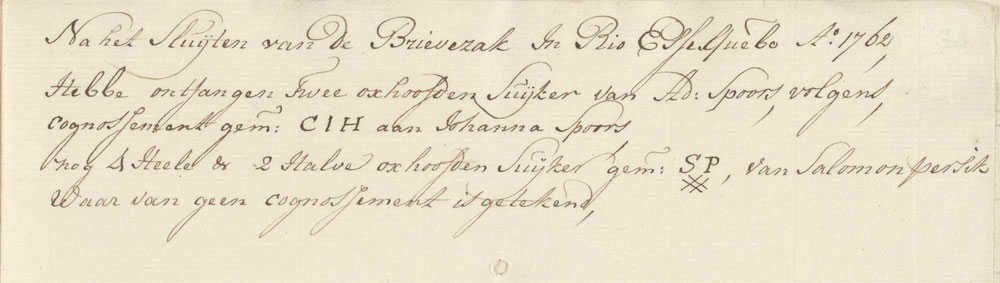 Na het Sluijten van de Brievezak In Rio Essequebo A:o 1762,
Hebbe ontfangen Twee oxhoofden Suijker van Ad: Spoors, volgens,
cognossement gem: CIH aan Johanna Spoors
nog 4 Heele & 2 Halve oxhoofden Suijker gem: SP, van Salomon persik
Waar van geen cognossement is getekend,